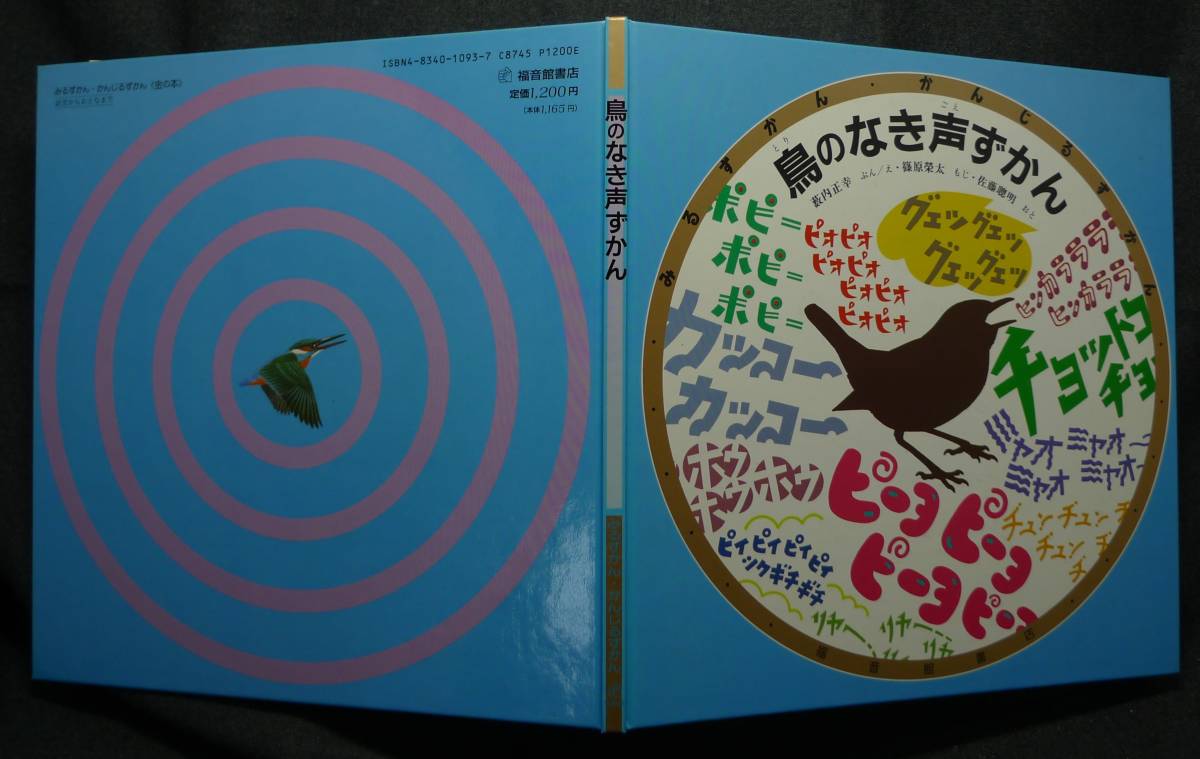 みるずかん・かんじるずかん《金の本》
幼児からおとなまで
ISBN4-8340-1093-7 C8745 P1200E
福音館書店
定価1,200円
(本体1,165円)
鳥のなき声ずかん
みるずかん かんじるずかん
みるずかん・かんじるずかん
とり ごえ
鳥のなき声ずかん
薮内正幸 ぶん/え・篠原榮太 もじ・佐藤聰明 おと
ポピー
ポピー
ポピー
ピオピオ
ピオピオ
ピオピオ
ピオピオ
グェッグェッ
グェッグェッ
ヒッカラララ
ヒッカララ
カッコー
カッコー
チョットコ
チョ
ミャオ ミャオー
ミャオ ミャオー
ホウ
ホウホウ
ピーヨ ピーヨ
ピーヨ ピー
チュン チュン チ
チュン チ
チ
ピィピィピィピィ
ツクギチギチ
リャー リャー
リャー リャ
福音館書店